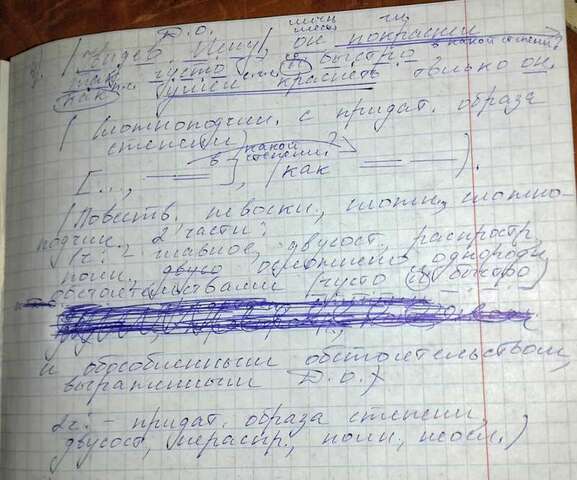 Д.О.
|Увидев Лену|, он покраснел
густо и быстро в какой степени?
как умел краснеть только он.
(Сложноподчин. с придат. образа
степени)
в какой степени?
[..., ], (как ).
(Повеств., невоскл., сложн., сложно-
подчин. 2 части:
1ч: - главное, двусост., распростр,
полн. осложнено однородн
обстоятельствами (густо и быстро)
и обособленным обстоятельством,
выраженным Д.О.)
2ч: - придат. образа степени,
двусост., нераспр., полн., неосл.)